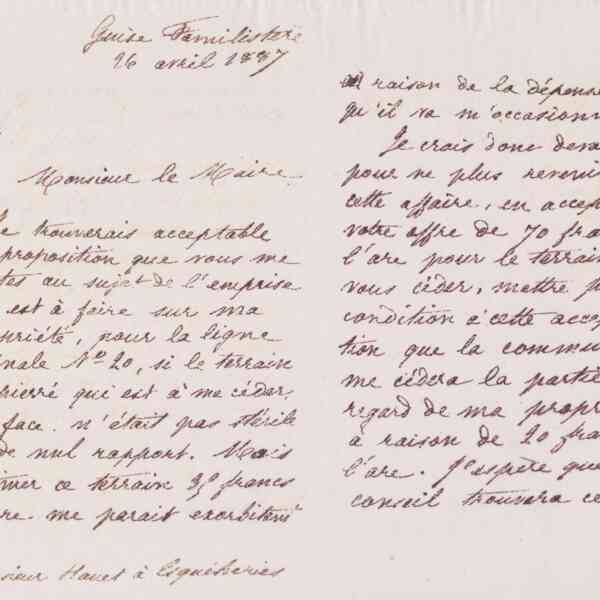 Guise Familistère
26 avril 1887
Monsieur le Maire
Je trouverais acceptable
proposition que vous me
tes au sujet de l'emprise
est à faire sur ma
priété, pour la ligne
nale No 20, si le terrain
pierré qui est à me céder,
face. n'était pas stérile
de nul rapport. Mais
imer ce terrain 35 francs
re me parait exorbitant
sieur Hauet à Esquéheries
raison de la dépense
qu'il va m'occasionn
Je crois donc deva
pour ne plus reveni
cette affaire, en accep
votre offre de 70 fra
l'are pour le terrain
vous céder, mettre p
condition à cette accep
tion que la commu
me cédera la partie
regard de ma propr
à raison de 20 fra
l'are. J'espère que
conseil trouvera ce